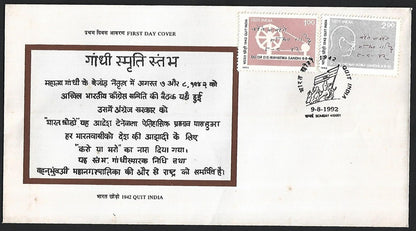 प्रथम दिवस आवरण FIRST DAY COVER
गांधी स्मृति स्तंभ
महात्मा गांधी के बेजोड़ नेतृत्व में अगस्त ७ और ८, १९४२ को
अखिल भारतीय काँग्रेस समिति की बैठक यहाँ हुई
उसमें अंग्रेज सरकार को
"भारत छोडो" यह आदेश देनेवाला ऐतिहासिक प्रस्ताव पास हुआ
हर भारतवासीको देश की आझादी के लिए
"करो या मरो" का नारा दिया गया।
यह स्तंभ गांधीस्मारक निधि तथा
बृहन्मुंबई महानगरपालिका की ओर से राष्ट्र को समर्पित है।
भारत छोड़ो 1942 QUIT INDIA
QUIT INDIA
100
DO OR DIE-MAHATMA GANDHI 8-8-42
1942 QUIT INDIA
2.00
1942
भारत छोड़ो
QUIT INDIA
9-8-1992
बम्बई BOMBAY